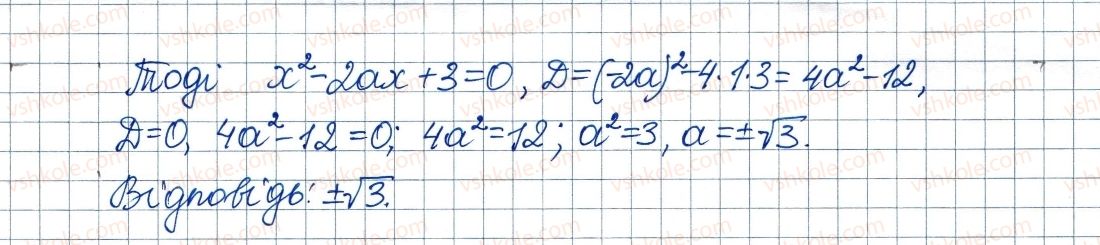 Тоді x²-2ax+3=0, D=(-2a)²-4·1·3=4a²-12,
D=0, 4a²-12=0; 4a²=12; a²=3, a=±√3.
Відповідь: ±√3.